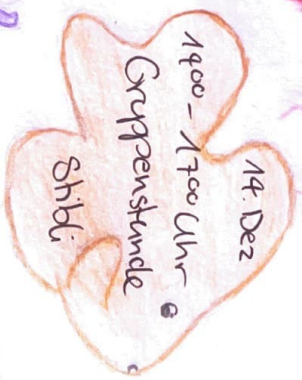 14. Dez
1400 - 1700 Uhr
Gruppenstunde
Stibli